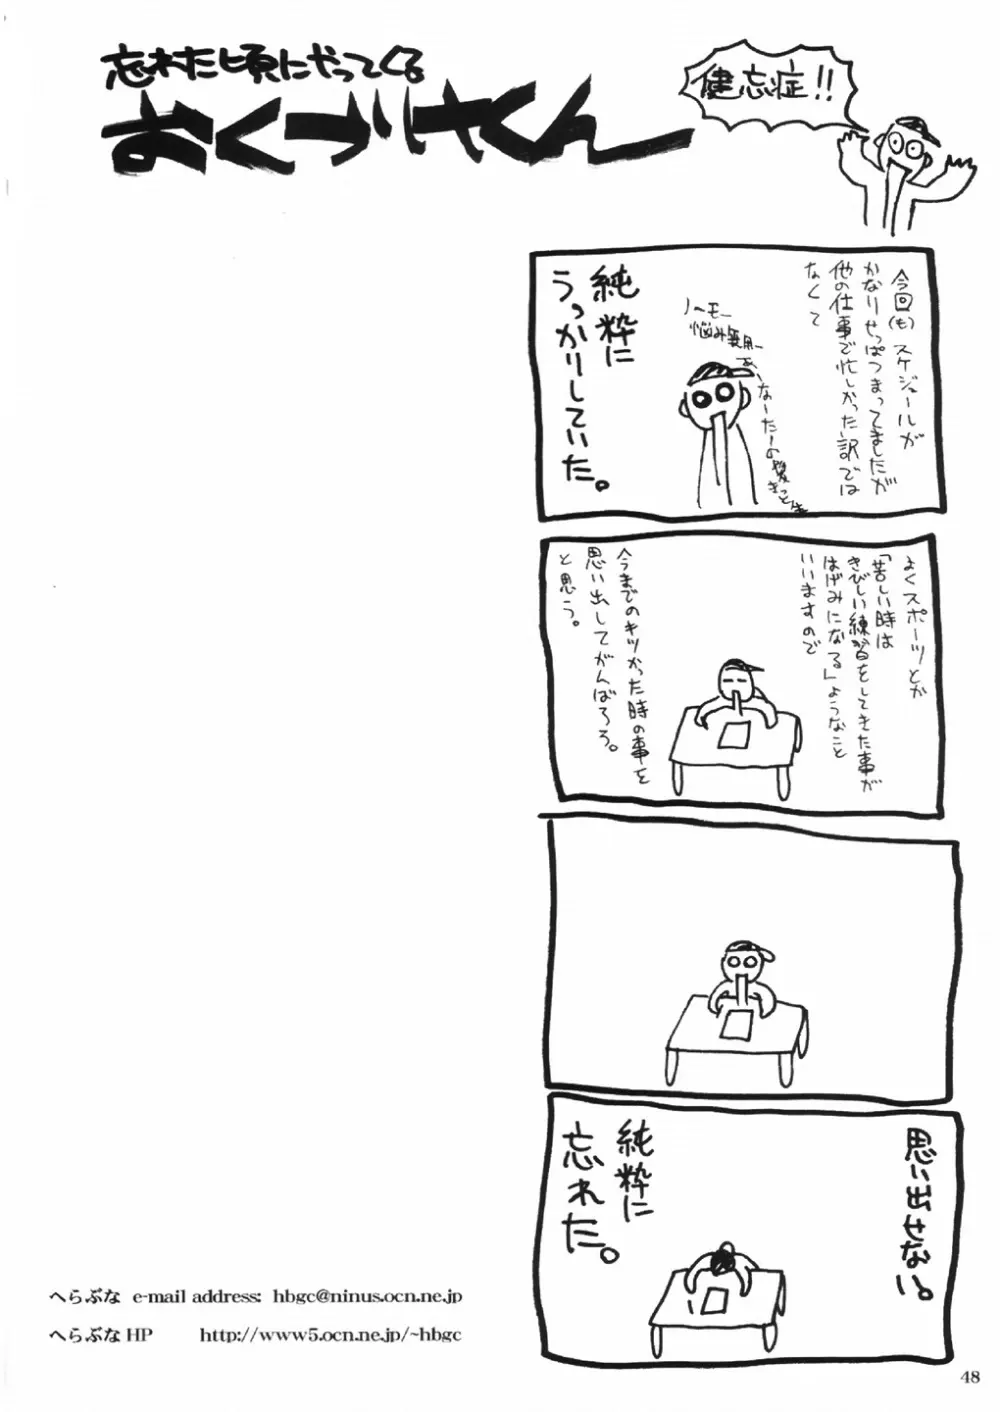 忘れた頃にやってくる
おくづけさくん
健忘症!!
今回(も)スケジュールが
かなりせっぱつまってましたが
他の仕事で忙しかった訳では
なくて
ノーモー
悩み無用ー
あーなーたーの髪
きっと生
純粋に
うっかりしていた。
よくスポーツとか
「苦しい時は
きびしい練習をしてきた事が
はげみになる」ようなこと
いいますので
今までのキツかった時の事を
思い出してがんばろう。
と思う。
思い出せない。
純粋に
忘れた。
へらぶな e-mail address: hbgc@ninus.ocn.ne.jp
へらぶなHP http://www5.ocn.ne.jp/~hbgc
48